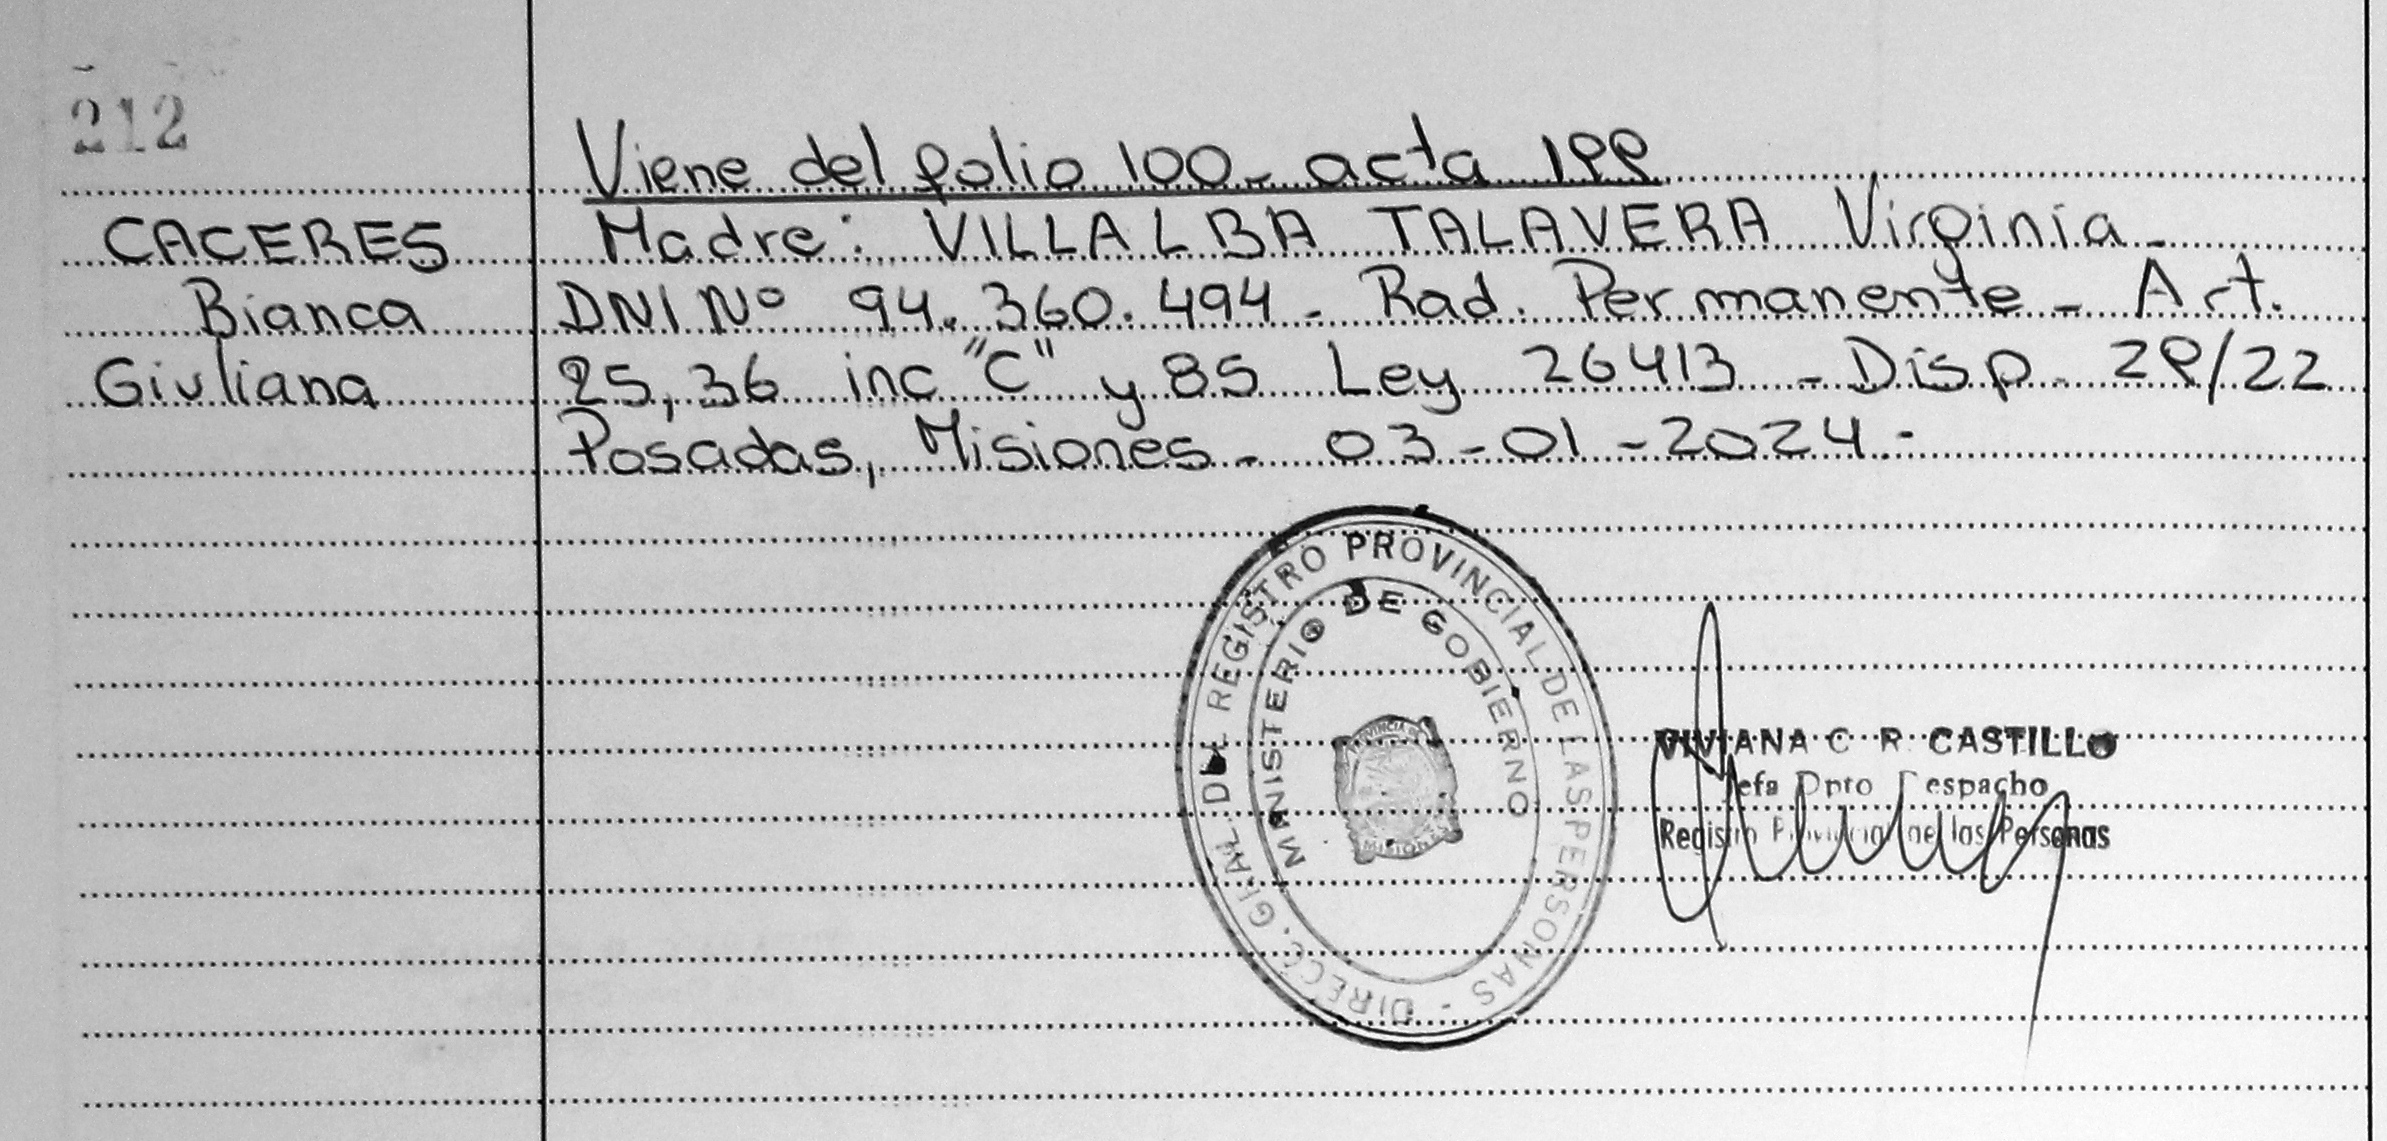 212
Viene del folio 100- acta 199
CACERES
Bianca
Giuliana
Madre: VILLALBA TALAVERA Virginia-
DNI Nº 94.360.494- Rad. Permanente- Art.
25,36 inc "C" y 85 Ley 26413 - Disp. 29/22
Posadas, Misiones- 03-01-2024.-
DIRECC. GRAL. DEL REGISTRO PROVINCIAL DE LAS PERSONAS -
MINISTERIO DE GOBIERNO
VIVIANA C R CASTILLO
Jefa Dpto Despacho
Registro Provincial de las Personas